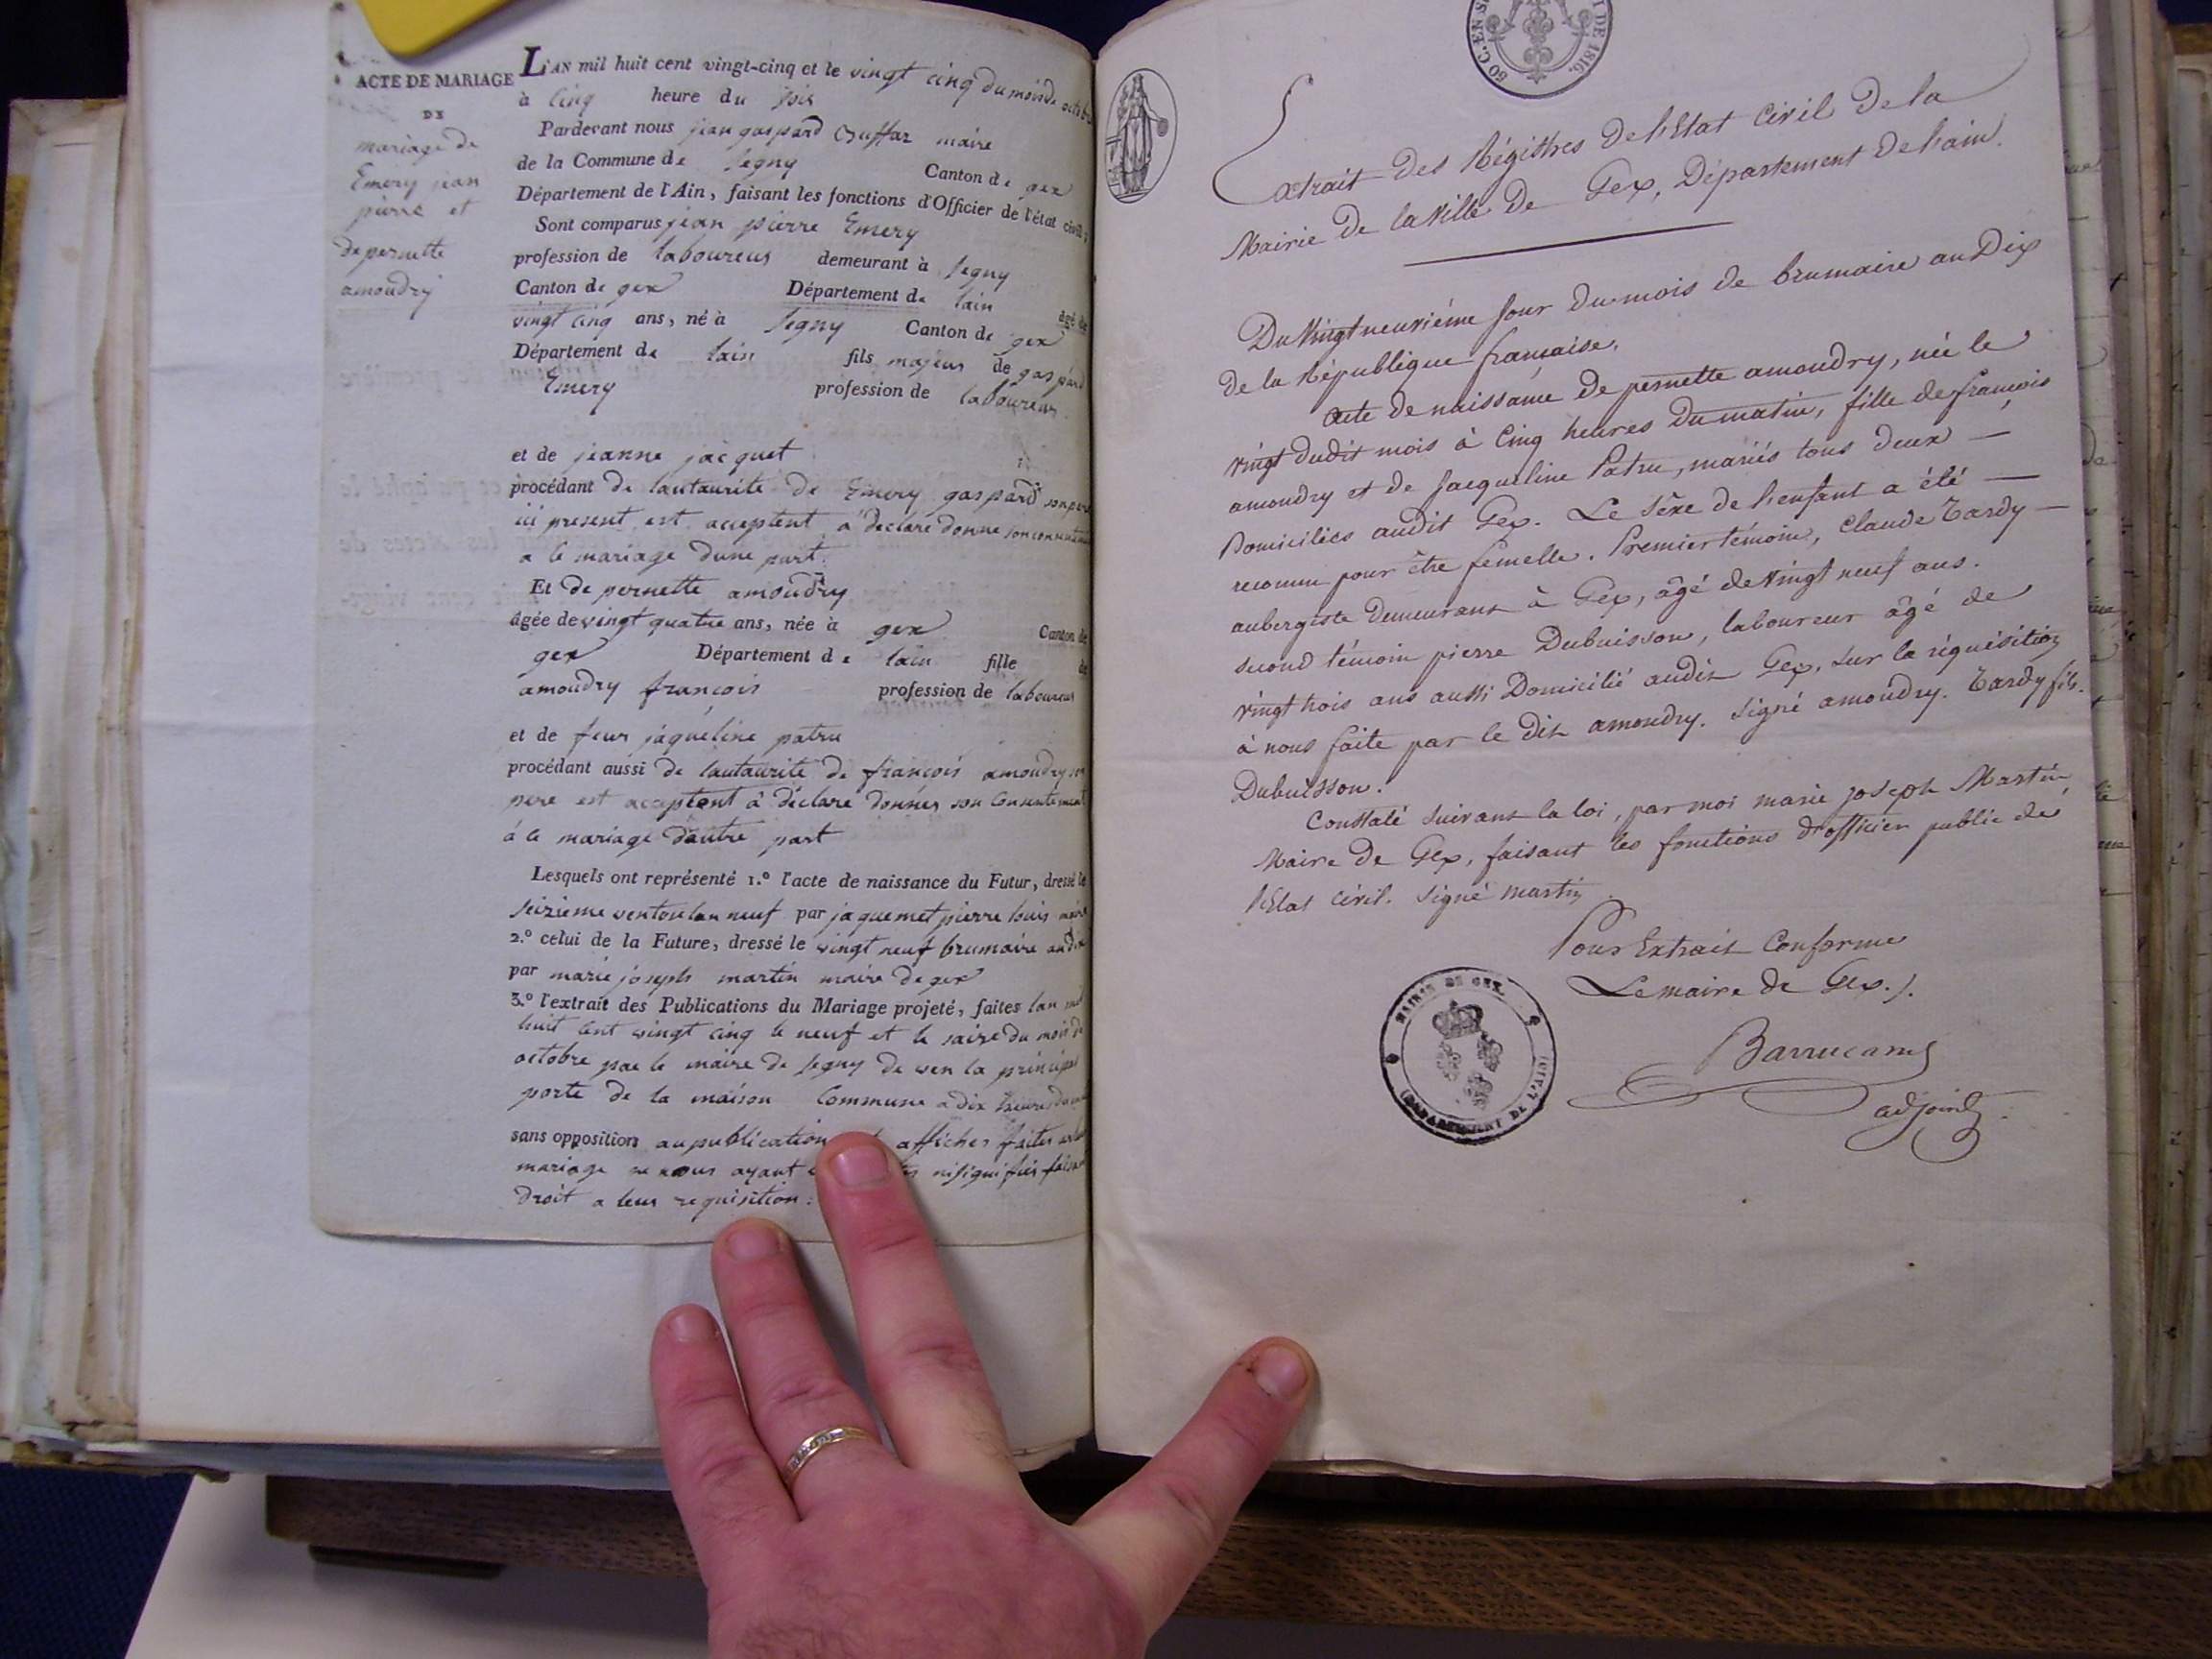 ACTE DE MARIAGE
DE
mariage de
Emery jean
pierre et
de pernette
amoudry
L'AN mil huit cent vingt-cinq et le vingt cinq du mois de
à cinq heure du soir
Pardevant nous jean gaspard maire
de la Commune de segny Canton de gex
Département de l'Ain, faisant les fonctions d'Officier de l'état civil,
Sont comparus jean pierre Emery
profession de laboureur demeurant à segny
Canton de gex Département de lain âgé de
vingt cinq ans, né à segny Canton de gex
Département de lain fils majeur de gaspard
Emery profession de laboureur
et de jeanne jacquet
procédant de lautaurité de Emery gaspard son pere
ici present est acceptent a declare donne son consentement
a le mariage dune part
Et de pernette amoudry
âgée de vingt quatre ans, née à gex Canton de
gex Département de lain fille de
amoudry françois profession de laboureur
et de feue jaqueline patru
procédant aussi de lautaurité de françois amoudry son
pere est acceptent à déclare donner son Consentement
à le mariage dautre part
Lesquels ont représenté 1.º l'acte de naissance du Futur, dressé le
seizieme ventose lan neuf par jaquemet pierre louis maire
2.º celui de la Future, dressé le vingt neuf brumaire an dix
par marie joseph martin maire de gex
3.º l'extrait des Publications du Mariage projeté, faites lan mil
huit cent vingt cinq le neuf et le saize du mois de
octobre par le maire de segny la principal
porte de la maison Commune a dix heures
sans opposition au publication affiches faites
mariage ne nous ayant
droit a leur requisition :
50 C. EN S
I DE 1816.
Extrait des Régistres de l'Etat Civil de la
Mairie de la Ville de Gex, Département de l'ain.
Du Vingt neuvième jour du mois de brumaire an Dix
de la République française.
Acte de naissance de pernette amoudry, née le
vingt dudit mois à cinq heures du matin, fille de françois
amoudry et de Jacqueline Patru, mariés tous deux —
Domiciliés audit Gex. Le sèxe de l'enfant a été —
reconnu pour être femelle. Premier témoin, Claude Tardy —
aubergiste demeurant à Gex, âgé de vingt neuf ans.
second témoin pierre Dubuisson, laboureur âgé de
vingt trois ans aussi Domicilié audit Gex, sur la réquisition
à nous faite par le dit amoudry. signé amoudry. Tardy fils.
Dubuisson.
Constaté suivant la loi, par moi marie joseph Martin,
Maire de Gex, faisant les fonctions d'officier public de
l'Etat civil. signé martin
Pour Extrait Conforme
Le maire de Gex./.
adjoint
MAIRIE DE GEX.
(DEPARTEMENT DE L'AIN)